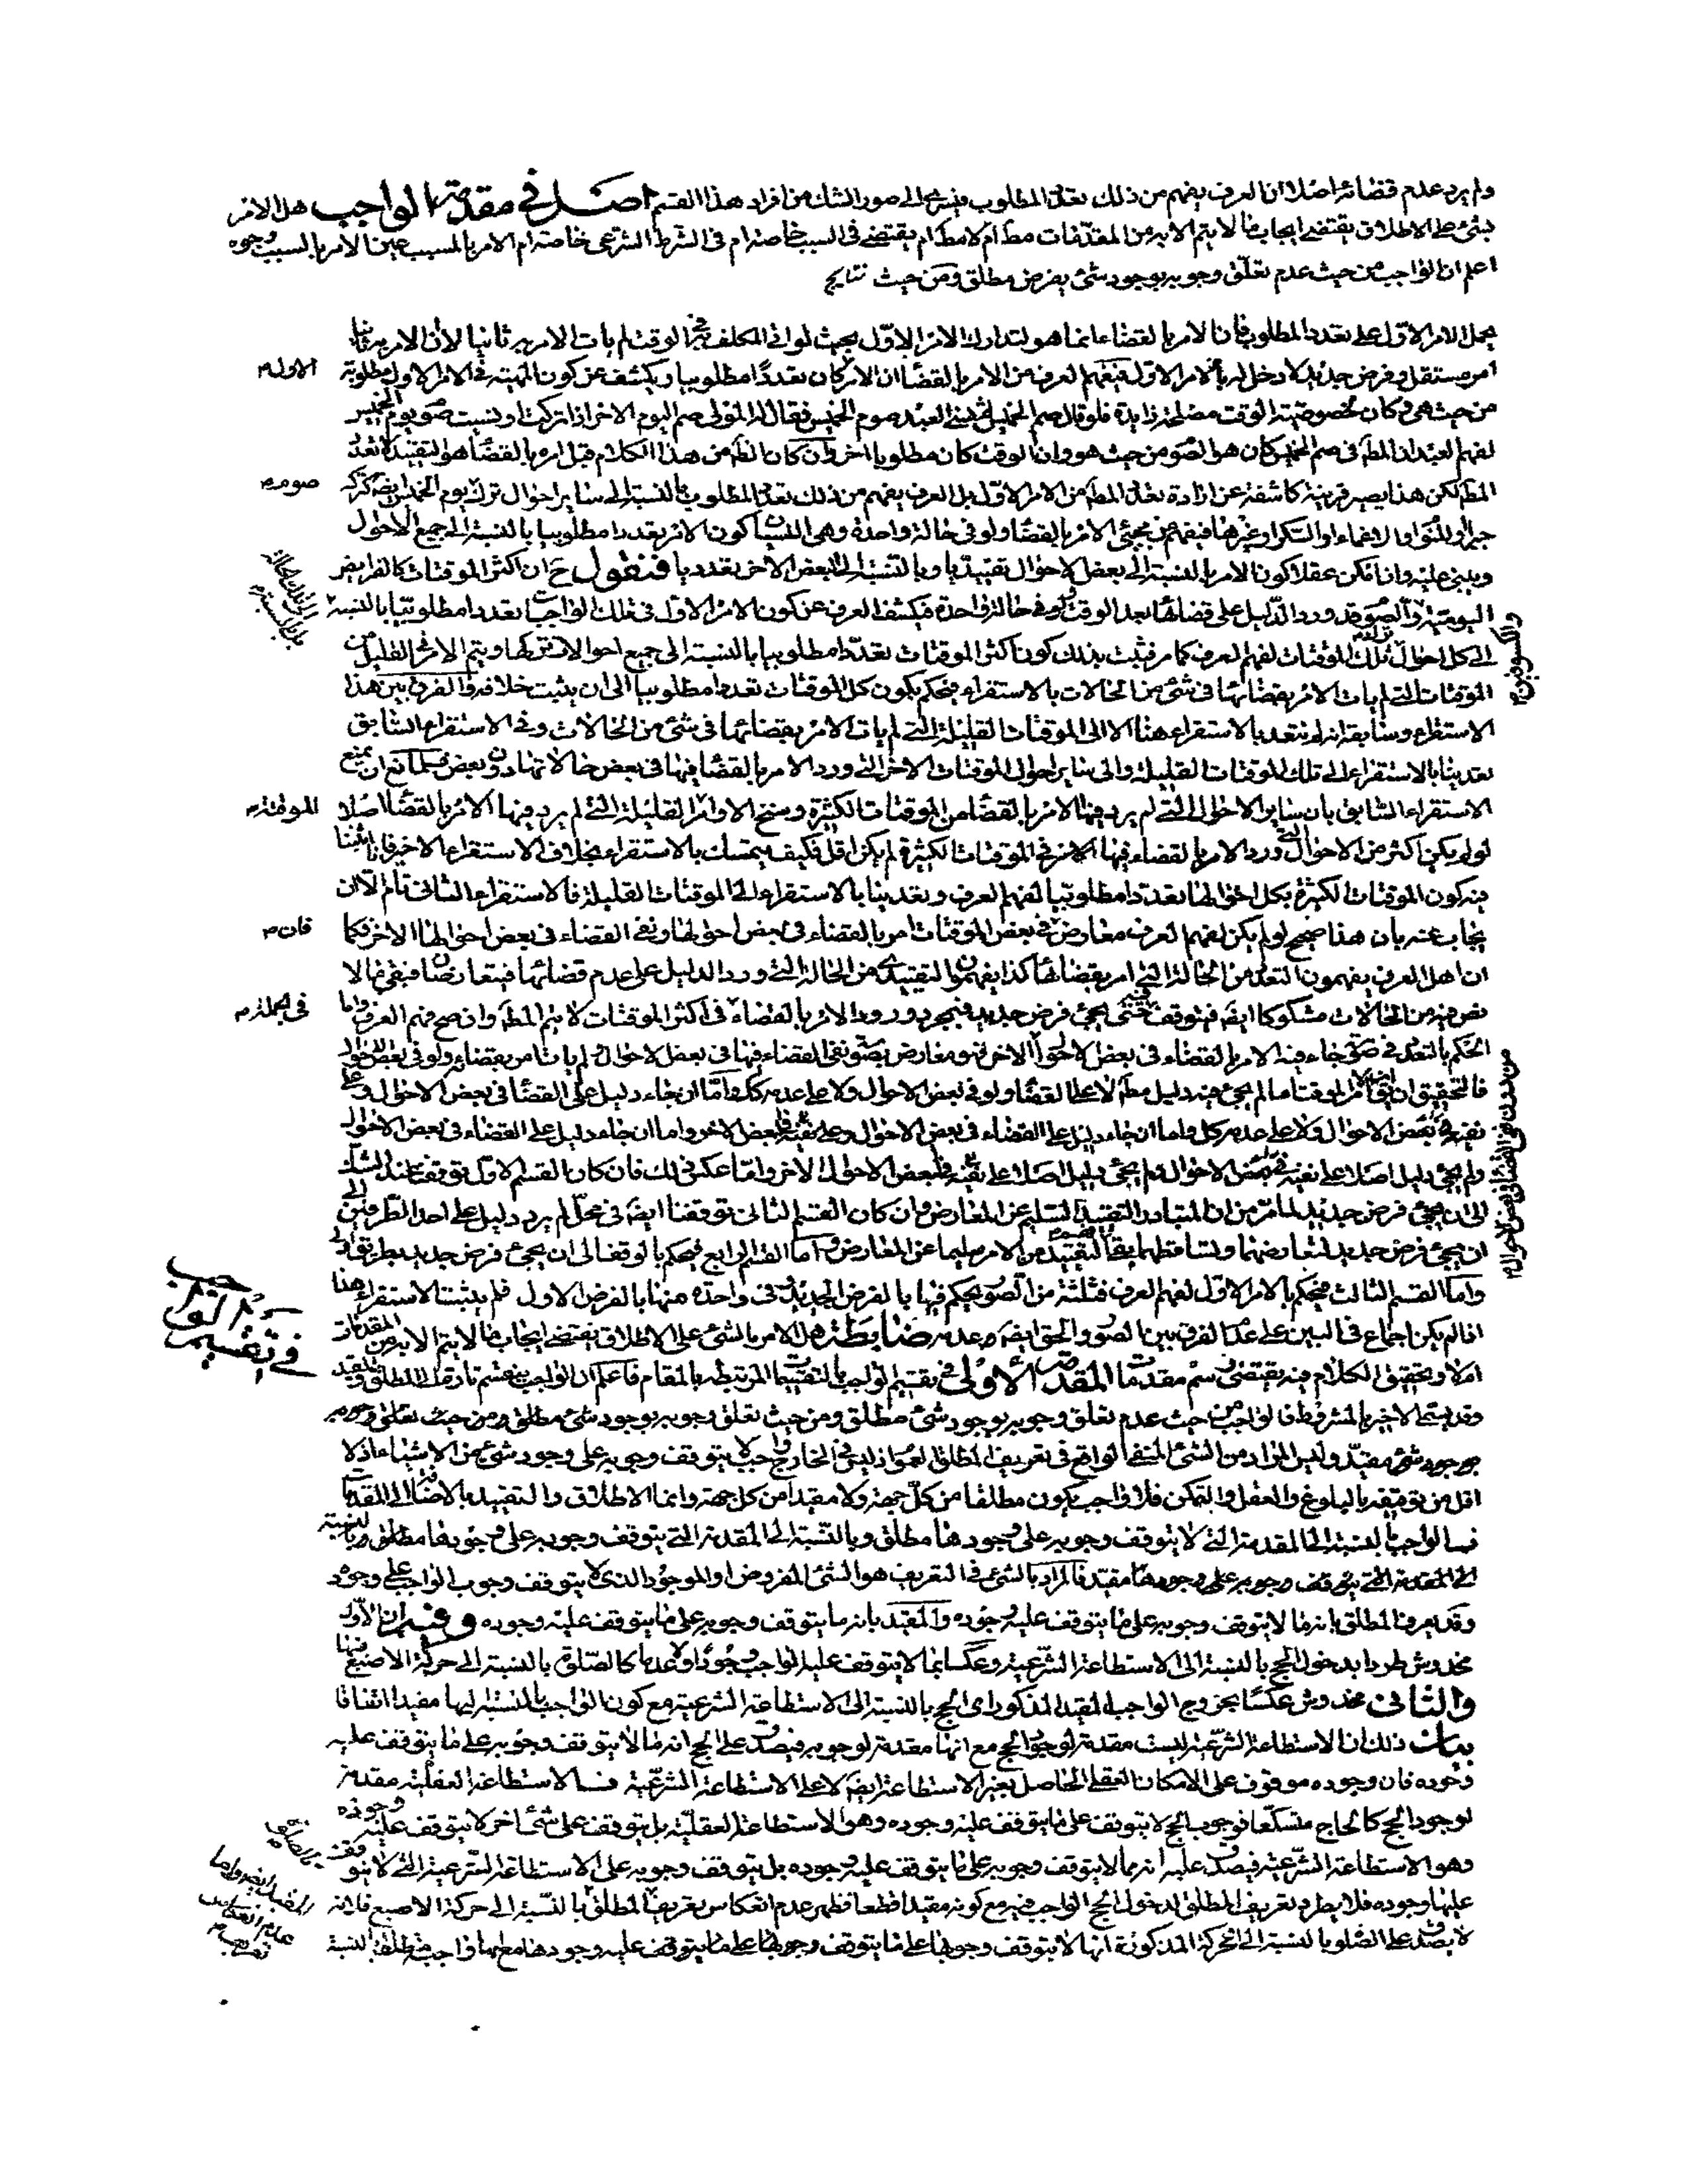 ولم يرد عدم قضائه اصلا ان العرف يفهم من ذلك تعدد المطلوب فيسرى الى صور الشك من افراد هذا القسم اصل في مقدمة الواجب هل الامر
بشئ على الاطلاق يقتضى ايجاب ما لا يتم الا به من المقدمات مط ام لا مط ام يقتضى فى السبب خاصة ام فى الشرط الشرعى خاصة ام الامر بالمسبب عين الامر بالسبب وجوه
اعلم ان الواجب من حيث عدم تعلق وجوبه بوجود شئ يفرض مطلق ومن حيث
يحمل الامر الاول على تعدد المطلوب فان الامر بالقضاء انما هو لتدارك الامر الاول بحيث لو اتى المكلف فى الوقت لم يات الامر به ثانيا لان الامر به ثانيا
امر مستقل وفرض جديد لا دخل له بالامر الاول فيفهم العرف من الامر بالقضاء ان الامر كان تعددا مطلوبيا ويكشف عن كون المهية فى الامر الاول مطلوبة
الاول م
من حيث هى وكان لخصوصية الوقت مصلحة زايدة فلو قال صم الخميس فنسى العبد صوم الخميس فقال له المولى صم اليوم الاخر اذا تركت او نسيت صوم يوم الخميس
لفهم العبد ان المط فى صم الخميس كان هو الصوم من حيث هو وان الوقت كان مطلوبا اخر وان كان الظ من هذا الكلام قبل امره بالقضاء هو التقييد لا تعدد
المط لكن هذا يصير قرينة كاشفة عن ارادة تعدد المط من الامر الاول بل العرف يفهم من ذلك تعدد المطلوب بالنسبة الى ساير احوال ترك يوم الخميس ايض كتركه
صوم م
جبرا او للنوم او الاغماء او السكر او غيرها فيفهم من مجيئ الامر بالقضاء ولو فى حالة واحدة وهى النسيان كون الامر تعددا مطلوبيا بالنسبة الى جميع الاحوال
ويبنى عليه وان امكن عقلا كون الامر بالنسبة الى بعض الاحوال تقييديا وبالنسبة الى البعض الاخر تعدديا فنقول ح ان اكثر الموقتات كالفرايض
اليومية والصوم قد ورد الدليل على قضائها بعد الوقت ولو فى حالة واحدة فيكشف العرف عن كون الامر الاول فى تلك الواجبات تعددا مطلوبيا بالنسبة
الى كل احوال ترك تلك الموقتات لفهم العرف كما مر فثبت بذلك كون اكثر الموقتات تعددا مطلوبيا بالنسبة الى جميع احوالات تركها ويتم الامر فى القليل من
الموقتات التى لم يات الامر بقضائها فى شئ من الحالات بالاستقراء فيحكم بكون كل الموقتات تعددا مطلوبيا الى ان يثبت خلافه والفرق بين هذا
الاستقراء وسابقه انه لم نتعد بالاستقراء هنا الا الى الموقتات القليلة التى لم يات الامر بقضائها فى شئ من الحالات وفى الاستقراء السابق
تعدينا بالاستقراء الى تلك الموقتات القليلة والى ساير احوال الموقتات الاخر التى ورد الامر بالقضاء فيها فى بعض حالاتها دون بعض فللمانع ان يمنع
الاستقراء السابق بان ساير الاحوال التى لم يرد فيها الامر بالقضاء من الموقتات الكثيرة وسنخ الاوامر القليلة التى لم يرد فيها الامر بالقضاء اصلا
الموقتة م
لو لم يكن اكثر من الاحوال التى ورد الامر بالقضاء فيها الامر فى الموقتات الكثيرة لم يكن اقل فكيف يتمسك بالاستقراء بخلاف الاستقراء الاخير فانا اثبتنا
فيه كون الموقتات الكثيرة بكل احوالها تعددا مطلوبيا لفهم العرف وتعدينا بالاستقراء الى الموقتات القليلة فالاستقراء الثانى تام الا ان
يجاب عنه بان هذا صحيح لو لم يكن لفهم العرف معارض فى بعض الموقتات امر بالقضاء فى بعض احوالها ونفى القضاء فى بعض احوالها الاخر فكما
فان م
ان اهل العرف يفهمون التعدد من الحالة التى امر بقضائها كذا يفهمون التقييد من الحالة التى ورد الدليل على عدم قضائها فيتعارضان فيبقى ما لا
نص فيه من الحالات مشكوكا ايض فيتوقف فيه حتى يجئ فرض جديد فبمجرد ورود الامر بالقضاء فى اكثر الموقتات لا يتم المط وان صح فهم العرف واما
فى الجملة م
الحكم بالتعدد فى صورة جاء فيه الامر بالقضاء فى بعض الاحوال الاخر فهو معارض بصورة نفى القضاء فيها فى بعض الاحوال
فالتحقيق ان يق
نفيه فى بعض الاحوال ولا على عدمه كل واما ان جاء دليل على القضاء فى بعض الاحوال وعلى نفيه فى البعض الاخر واما ان جاء دليل على القضاء فى بعض الاحوال
ولم يجئ دليل اصلا على نفيه فى بعض الاحوال
الى ان يجئ فرض جديد لما مر من ان المتبادر التقييد السليم عن المعارض وان كان القسم الثانى توقفنا ايض فى محل لم يرد دليل على احد الطرفين الى
ان يجئ فرض جديد لتعارضهما وتساقطهما
واما القسم الثالث فيحكم بالامر الاول لفهم العرف فثلثة من الصور يحكم فيها بالفرض الجديد وفى واحدة منها بالفرض الاول فلم يثبت الاستقراء هنا
اذا لم يكن اجماع فى البين على عدم الفرق بين الصور والحق ايض عدمه ضابطة هل الامر بالشئ على الاطلاق يقتضى ايجاب ما لا يتم الا به من المقدمات
ام لا وتحقيق الكلام فيه يقتضى رسم مقدمات المقدمة الاولى فى تقسيم الواجب بالتقسيمات المرتبطة بالمقام فاعلم ان الواجب ينقسم تارة الى المطلق والمقيد
في تقسيم الواجب
وقد يسمى الاخير بالمشروط فالواجب من حيث عدم تعلق وجوبه بوجود شئ مطلق ومن حيث تعلق وجوبه
بوجود شئ مقيد وليس المراد من الشئ المنفى الواقع فى تعريف المطلق العموم اذ ليس فى الخارج واجب لا يتوقف وجوبه على وجود شئ من الاشياء اذ لا
اقل من توقفه بالبلوغ والعقل والتمكن فلا واجب يكون مطلقا من كل جهة ولا مقيدا من كل جهة وانما الاطلاق والتقييد بالاضافة الى المقدمات
فالواجب بالنسبة الى المقدمة التى لا يتوقف وجوبه على وجودها مطلق وبالنسبة
الى المقدمة التى يتوقف وجوبه على وجودها مقيد فالمراد بالشئ فى التعريف هو الشئ المفروض او الموجود الذى لا يتوقف وجوب الواجب على وجوده
وقد يعرف المطلق بانه ما لا يتوقف وجوبه على ما يتوقف عليه وجوده والمقيد بانه ما يتوقف وجوبه على ما يتوقف عليه وجوده وفيه ان الاول
مخدوش طردا بدخول الحج بالنسبة الى الاستطاعة الشرعية وعكسا بما لا يتوقف عليه الواجب وجودا ولا عدما كالصلوة بالنسبة الى حركة الاصبع
والثانى مخدوش عكسا بخروج الواجب المقيد المذكور اى الحج بالنسبة الى الاستطاعة الشرعية مع كون الواجب بالنسبة اليها مقيدا اتفاقا
بيان ذلك ان الاستطاعة الشرعية ليست مقدمة لوجود الحج مع انها مقدمة لوجوبه فيصدق على الحج انه مما لا يتوقف وجوبه على ما يتوقف عليه
وجوده فان وجوده موقوف على الامكان العقلى الحاصل بغير الاستطاعة ايض لا على الاستطاعة الشرعية فالاستطاعة العقلية مقدمة
لوجود الحج كالحاج متسكعا فوجوب الحج لا يتوقف على ما يتوقف عليه وجوده وهو الاستطاعة العقلية بل يتوقف على شئ اخر لا يتوقف عليه وجوده
وهو الاستطاعة الشرعية فيصدق عليه انه مما لا يتوقف وجوبه على ما يتوقف عليه وجوده بل يتوقف وجوبه على الاستطاعة الشرعية التى لا يتوقف
عليها وجوده فلا يطرد تعريف المطلق لدخول الحج الواجب فيه مع كونه مقيدا قطعا فظهر عدم انعكاس تعريف المطلق بالنسبة الى حركة الاصبع فانه
لا يصدق على الصلوة بالنسبة الى الحركة المذكورة انها لا يتوقف وجوبها على ما يتوقف عليه وجودها مع انها واجب مطلق بالنسبة